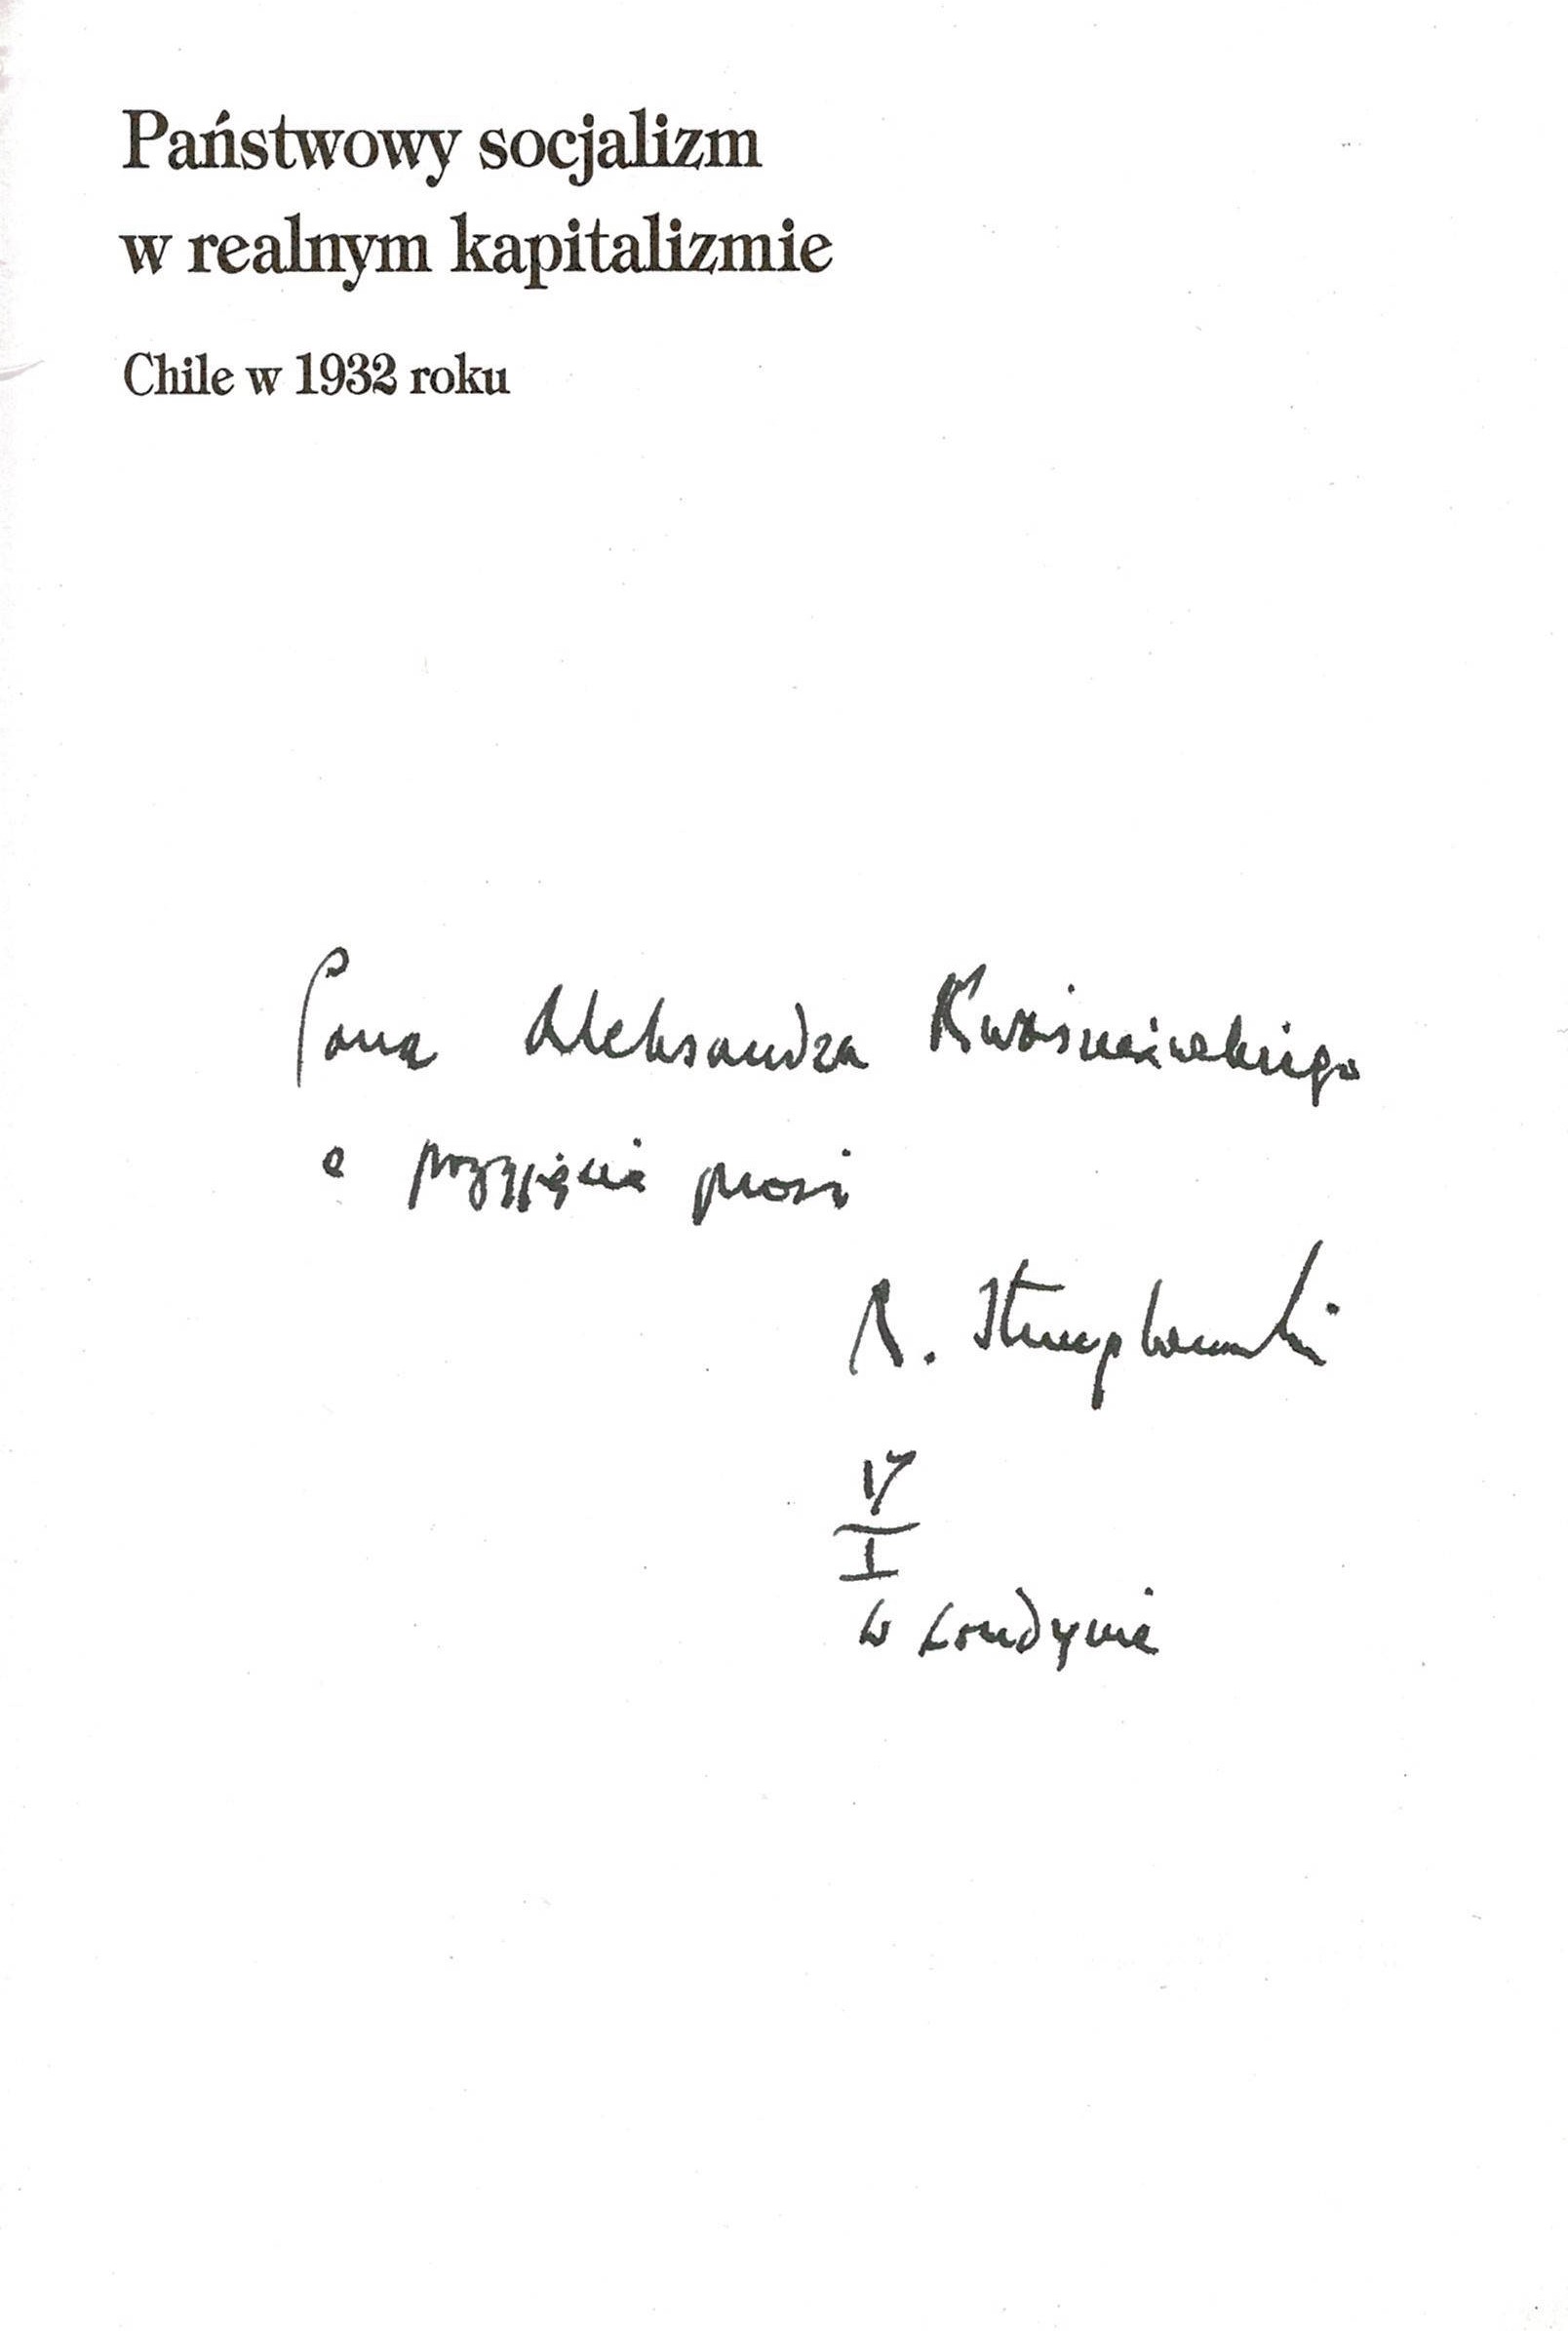 Państwowy socjalizm
w realnym kapitalizmie
Chile w 1932 roku
Pana Aleksandra Kwaśniewskiego
o przyjęcie prosi
R. Stemplowski
17
I
w Londynie